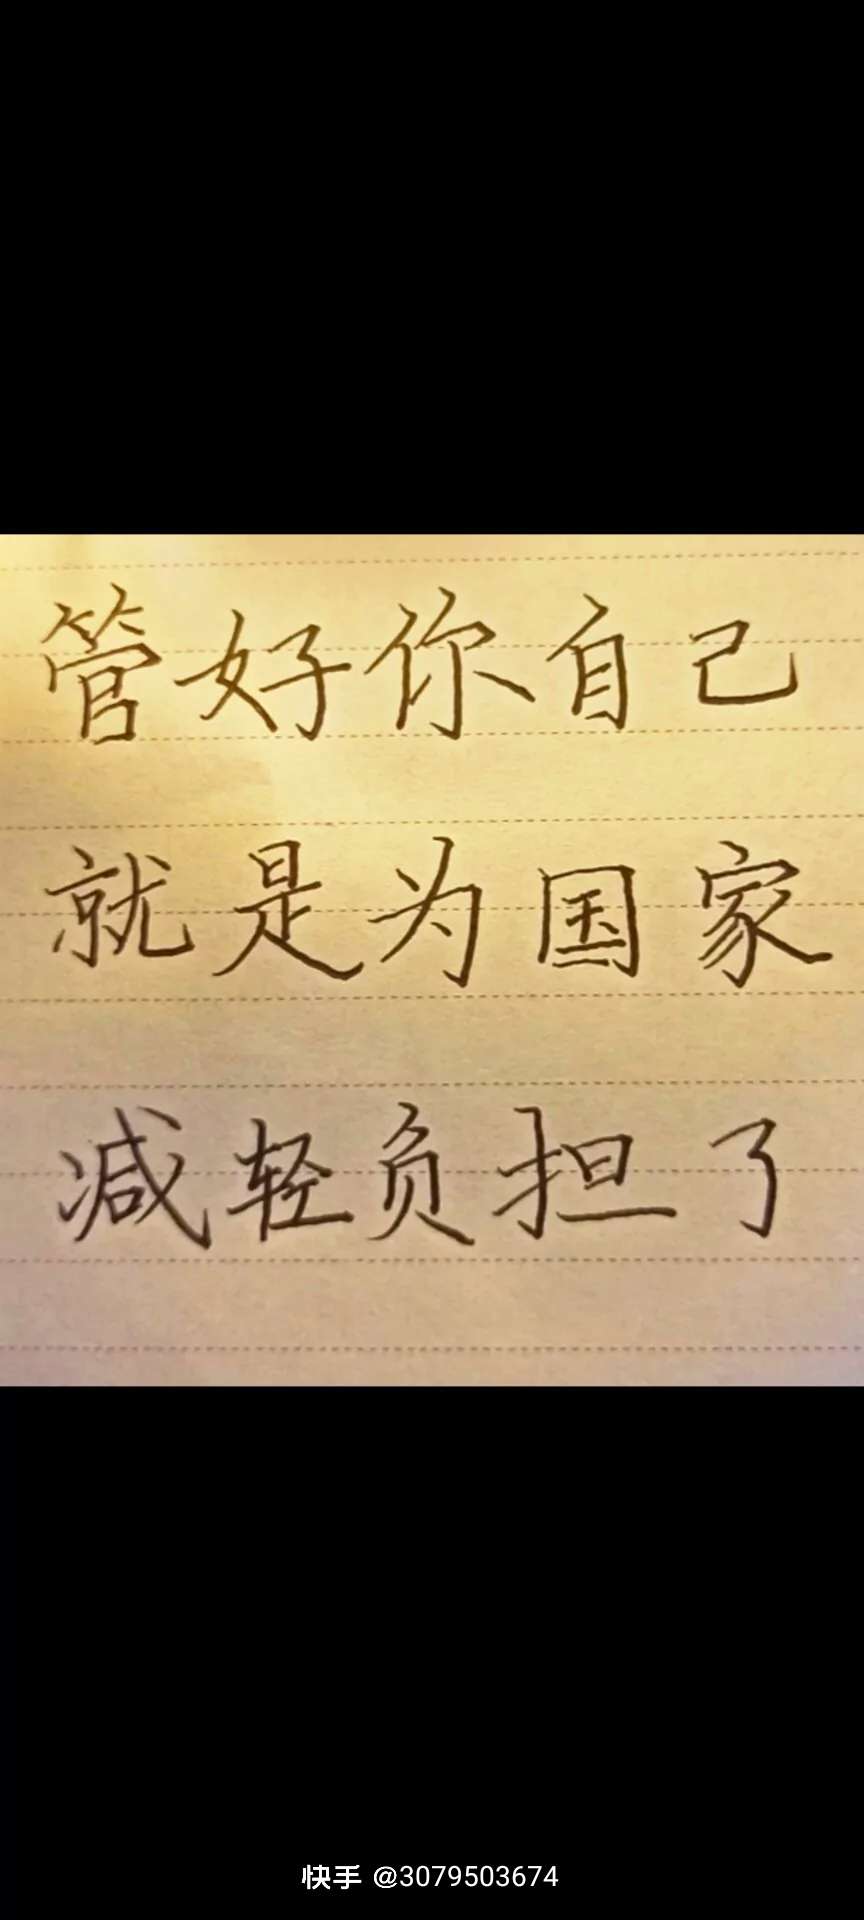 管好你自己
就是为国家
减轻负担了
快手 @3079503674